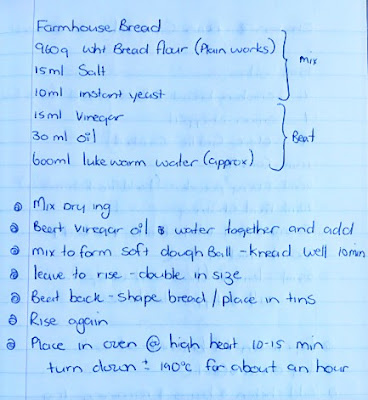 Farmhouse Bread
960g Wht Bread flour (Plain works)
15ml Salt
10ml instant yeast
mix
15ml Vinegar
30 ml oil
600ml luke warm water (approx)
Beat
Mix Dry ing
Beat vinegar oil & water together and add
mix to form soft dough Ball - knead well 10min
leave to rise - double in size
Beat back - shape bread / place in tins
Rise again
Place in oven @ high heat 10-15 min
turn down ± 190°c for about an hour